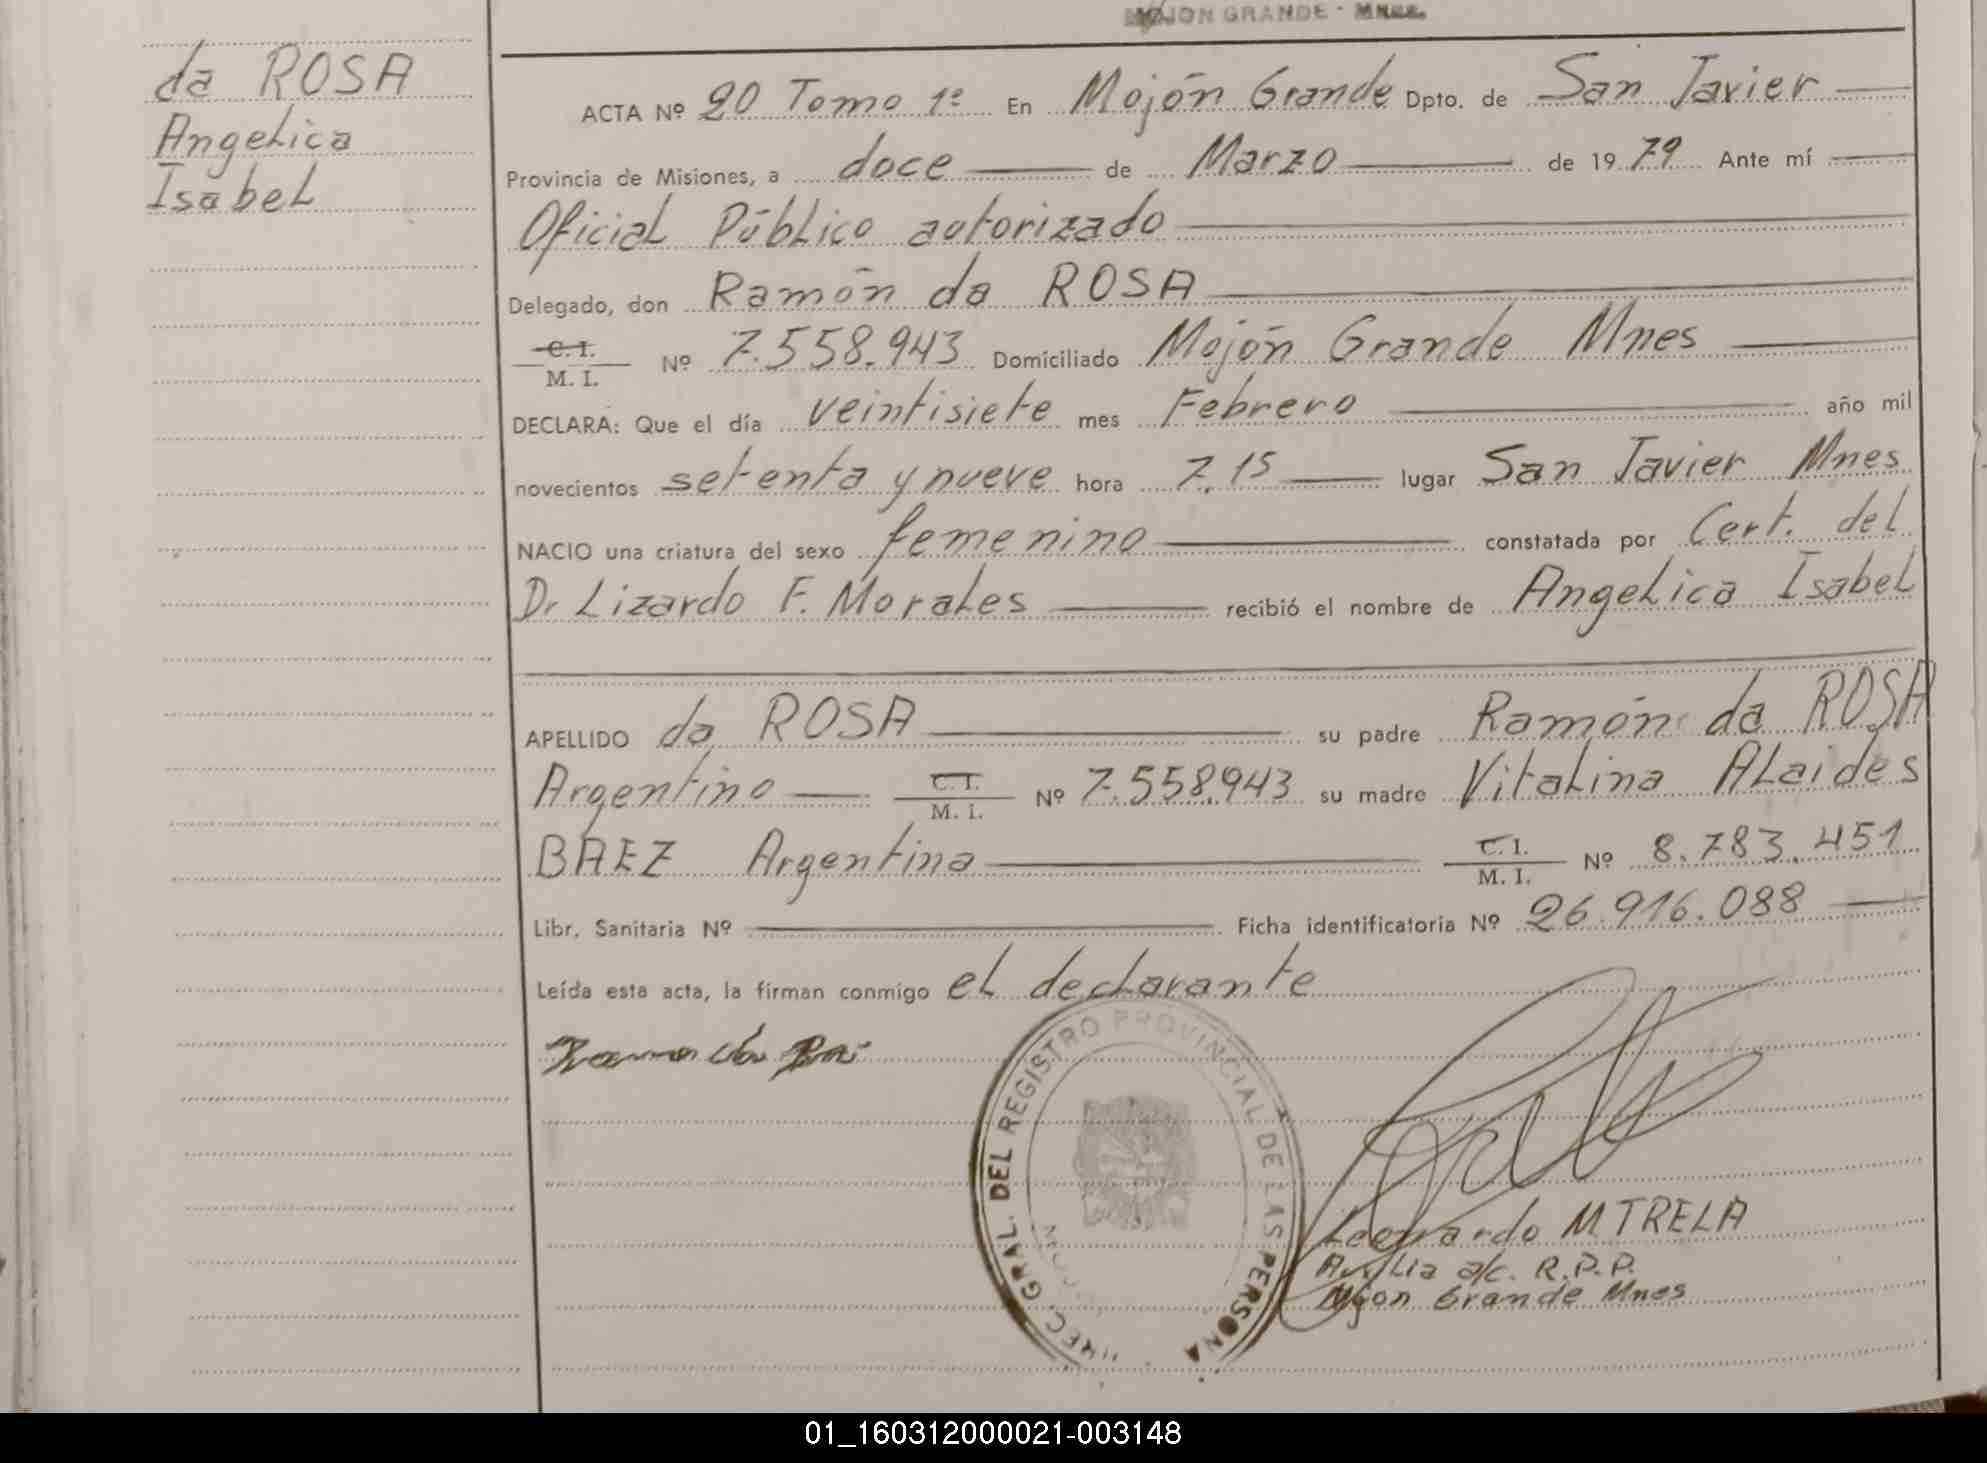 MOJON GRANDE - Mnes.
da ROSA
Angelica
Isabel
ACTA Nº 20 Tomo 1º En Mojón Grande Dpto. de San Javier
Provincia de Misiones, a doce de Marzo de 1979 Ante mí
Oficial Público autorizado
Delegado, don Ramón da ROSA
C. I.
M. I. Nº 7.558.943 Domiciliado Mojón Grande Mnes
DECLARA: Que el día veintisiete mes Febrero año mil
novecientos setenta y nueve hora 7,15 lugar San Javier Mnes
NACIO una criatura del sexo femenino constatada por Cert. del
Dr Lizardo F. Morales recibió el nombre de Angelica Isabel
APELLIDO da ROSA su padre Ramón da ROSA
Argentino C. I.
M. I. Nº 7.558.943 su madre Vitalina ALaides
BAEZ Argentina C. I.
M. I. Nº 8.783.451
Libr. Sanitaria Nº Ficha identificatoria Nº 26.916.088
Leída esta acta, la firman conmigo el declarante
Ramon da
DIREC. GRAL. DEL REGISTRO PROVINCIAL DE LAS PERSONA
Leonardo M TRELA
a/c. R.P.P.
Mojon Grande Mnes
01_160312000021-003148